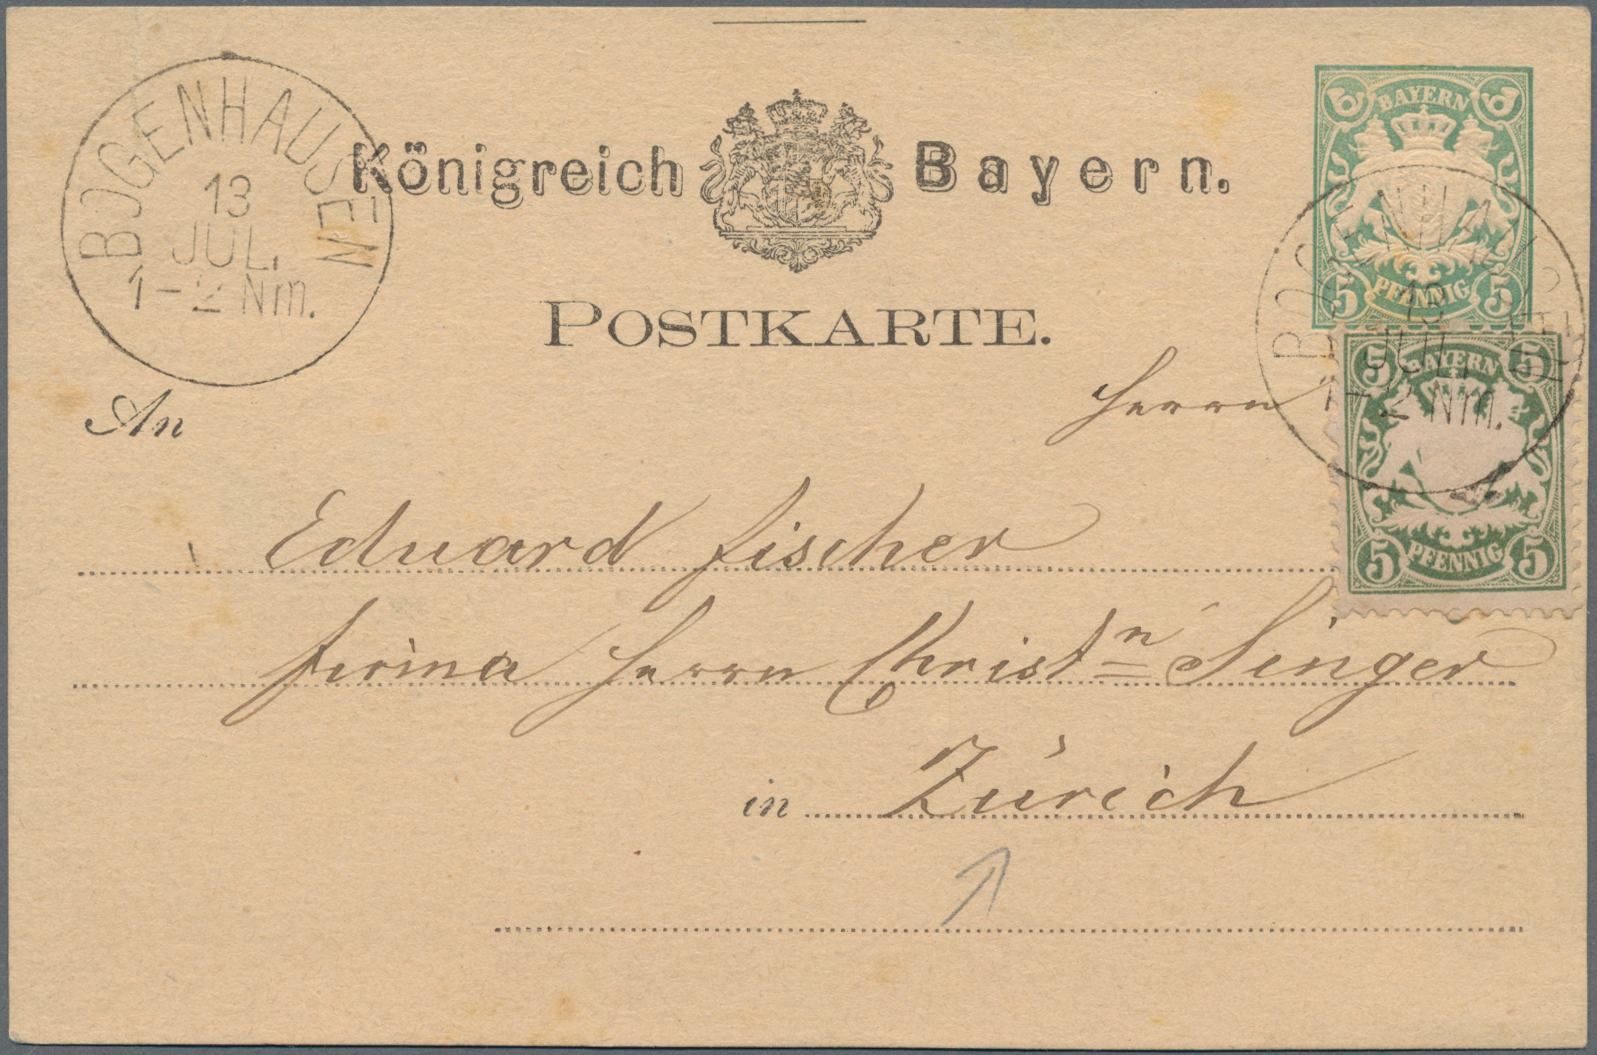 BOGENHAUSEN
13
JUL.
1-2 Nm.
Königreich Bayern.
POSTKARTE.
BAYERN
5 PFENNIG 5
BOGENHAUSEN
13
JUL.
1-2 Nm.
5 BAYERN 5
5 PFENNIG 5
An
Herrn
Eduard Fischer
Firma Herrn Christⁿ Singer
in Zürich